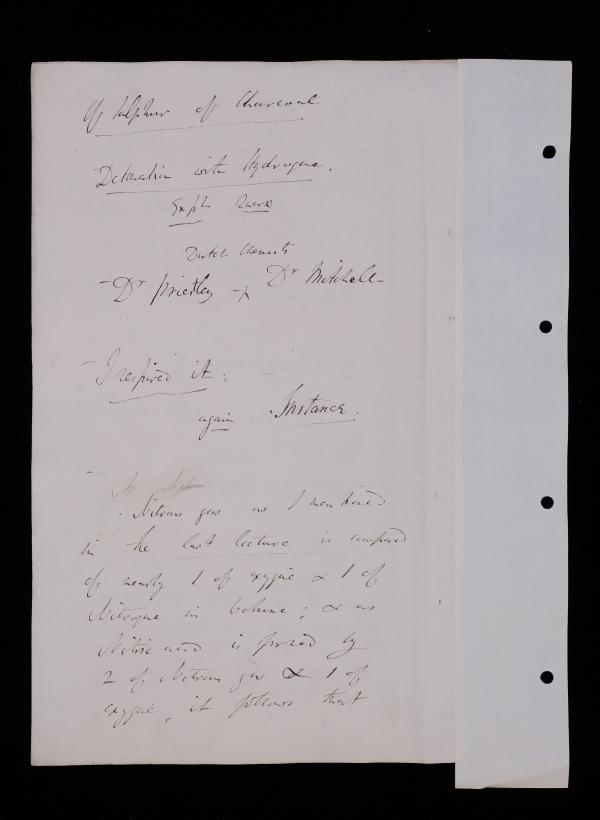 Of sulphur of Charcoal
Detonation with Hydrogene.
Expt
Dutch Chemists
- Dr Priestley + Dr Mitchell -
- I respired it;
again . Instance.
- Nitrous gas as I mentioned
in the last lecture is composed
of nearly 1 of oxygene & 1 of
Nitrogene in Volume; & as
Nitric acid is formed by
2 of Nitrous gas & 1 of
oxygene, it follows that